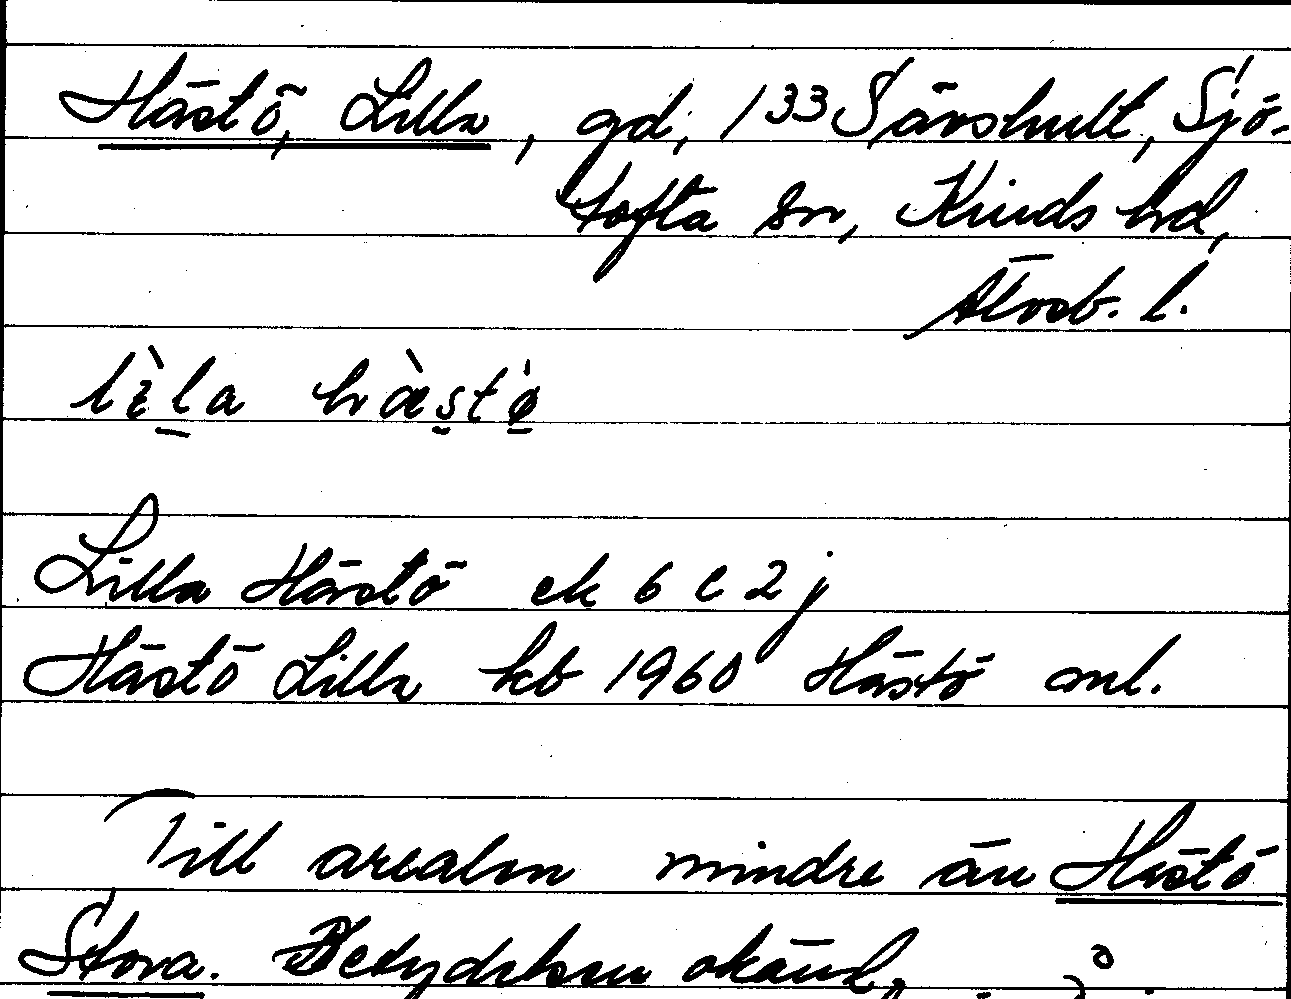 Hästö, Lilla, gd, 1³³ Särshult, Sjö-
tofta sn, Kinds hd,
Älvsb. l.
lɛ̀la hæ̀stø̀
Lilla Hästö ek 6 e 2 j
Hästö Lilla kb 1960 Hästö ml.
Till arealen mindre än Hästö
Stora. Betydelsen okänd,